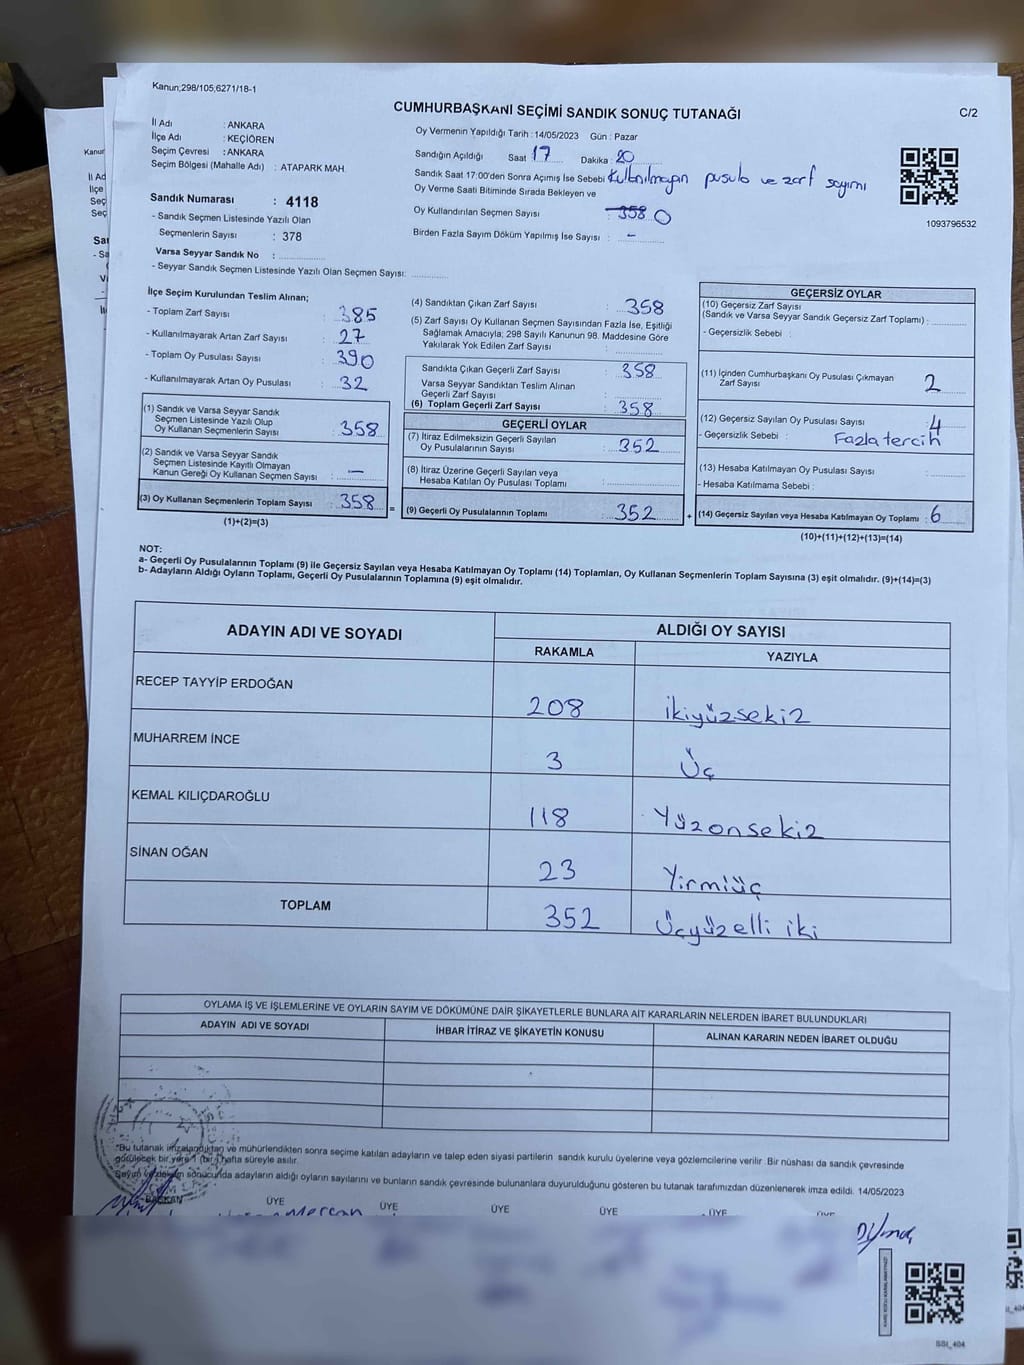 Kanun;298/105,6271/18-1
CUMHURBAŞKANI SEÇİMİ SANDIK SONUÇ TUTANAĞI
C/2
İl Adı : ANKARA
İlçe Adı : KEÇİÖREN
Seçim Çevresi : ANKARA
Seçim Bölgesi (Mahalle Adı) : ATAPARK MAH.
Sandık Numarası : 4118
- Sandık Seçmen Listesinde Yazılı Olan
Seçmenlerin Sayısı : 378
Varsa Seyyar Sandık No :
- Seyyar Sandık Seçmen Listesinde Yazılı Olan Seçmen Sayısı:
Oy Vermenin Yapıldığı Tarih : 14/05/2023 Gün : Pazar
Sandığın Açıldığı Saat 17 Dakika : 20
Sandık Saat 17:00'den Sonra Açımış İse Sebebi Kullanılmayan pusula ve zarf sayımı
Oy Verme Saati Bitiminde Sırada Bekleyen ve
Oy Kullandırılan Seçmen Sayısı : 358 0
Birden Fazla Sayım Döküm Yapılmış İse Sayısı : -
1093796532
İlçe Seçim Kurulundan Teslim Alınan;
- Toplam Zarf Sayısı : 385
- Kullanılmayarak Artan Zarf Sayısı : 27
- Toplam Oy Pusulası Sayısı : 390
- Kullanılmayarak Artan Oy Pusulası : 32
(1) Sandık ve Varsa Seyyar Sandık
Seçmen Listesinde Yazılı Olup
Oy Kullanan Seçmenlerin Sayısı : 358
(2) Sandık ve Varsa Seyyar Sandık
Seçmen Listesinde Kayıtlı Olmayan
Kanun Gereği Oy Kullanan Seçmen Sayısı : -
(3) Oy Kullanan Seçmenlerin Toplam Sayısı : 358 =
(1)+(2)=(3)
(4) Sandıktan Çıkan Zarf Sayısı : 358
(5) Zarf Sayısı Oy Kullanan Seçmen Sayısından Fazla İse, Eşitliği
Sağlamak Amacıyla; 298 Sayılı Kanunun 98. Maddesine Göre
Yakılarak Yok Edilen Zarf Sayısı :
Sandıkta Çıkan Geçerli Zarf Sayısı : 358
Varsa Seyyar Sandıktan Teslim Alınan
Geçerli Zarf Sayısı :
(6) Toplam Geçerli Zarf Sayısı : 358
GEÇERLİ OYLAR
(7) İtiraz Edilmeksizin Geçerli Sayılan
Oy Pusulalarının Sayısı : 352
(8) İtiraz Üzerine Geçerli Sayılan veya
Hesaba Katılan Oy Pusulası Toplamı :
(9) Geçerli Oy Pusulalarının Toplamı : 352 +
GEÇERSİZ OYLAR
(10) Geçersiz Zarf Sayısı
(Sandık ve Varsa Seyyar Sandık Geçersiz Zarf Toplamı) :
- Geçersizlik Sebebi :
(11) İçinden Cumhurbaşkanı Oy Pusulası Çıkmayan
Zarf Sayısı : 2
(12) Geçersiz Sayılan Oy Pusulası Sayısı : 4
- Geçersizlik Sebebi : Fazla tercih
(13) Hesaba Katılmayan Oy Pusulası Sayısı :
- Hesaba Katılmama Sebebi :
(14) Geçersiz Sayılan veya Hesaba Katılmayan Oy Toplamı : 6
(10)+(11)+(12)+(13)=(14)
NOT:
a- Geçerli Oy Pusulalarının Toplamı (9) ile Geçersiz Sayılan veya Hesaba Katılmayan Oy Toplamı (14) Toplamları, Oy Kullanan Seçmenlerin Toplam Sayısına (3) eşit olmalıdır. (9)+(14)=(3)
b- Adayların Aldığı Oyların Toplamı, Geçerli Oy Pusulalarının Toplamına (9) eşit olmalıdır.
ADAYIN ADI VE SOYADI
ALDIĞI OY SAYISI
RAKAMLA YAZIYLA
RECEP TAYYİP ERDOĞAN 208 ikiyüzsekiz
MUHARREM İNCE 3 Üç
KEMAL KILIÇDAROĞLU 118 Yüzonsekiz
SİNAN OĞAN 23 Yirmiüç
TOPLAM 352 Üçyüzelli iki
OYLAMA İŞ VE İŞLEMLERİNE VE OYLARIN SAYIM VE DÖKÜMÜNE DAİR ŞİKAYETLERLE BUNLARA AİT KARARLARIN NELERDEN İBARET BULUNDUKLARI
ADAYIN ADI VE SOYADI İHBAR İTİRAZ VE ŞİKAYETİN KONUSU ALINAN KARARIN NEDEN İBARET OLDUĞU
*Bu tutanak imzalandıktan ve mühürlendikten sonra seçime katılan adayların ve talep eden siyasi partilerin sandık kurulu üyelerine veya gözlemcilerine verilir. Bir nüshası da sandık çevresinde
görülecek bir yere 1 (bir) hafta süreyle asılır.
Sayım ve döküm sonucunda adayların aldığı oyların sayılarını ve bunların sandık çevresinde bulunanlara duyurulduğunu gösteren bu tutanak tarafımızdan düzenlenerek imza edildi. 14/05/2023
BAŞKAN ÜYE ÜYE ÜYE ÜYE ÜYE ÜYE
SSI_404